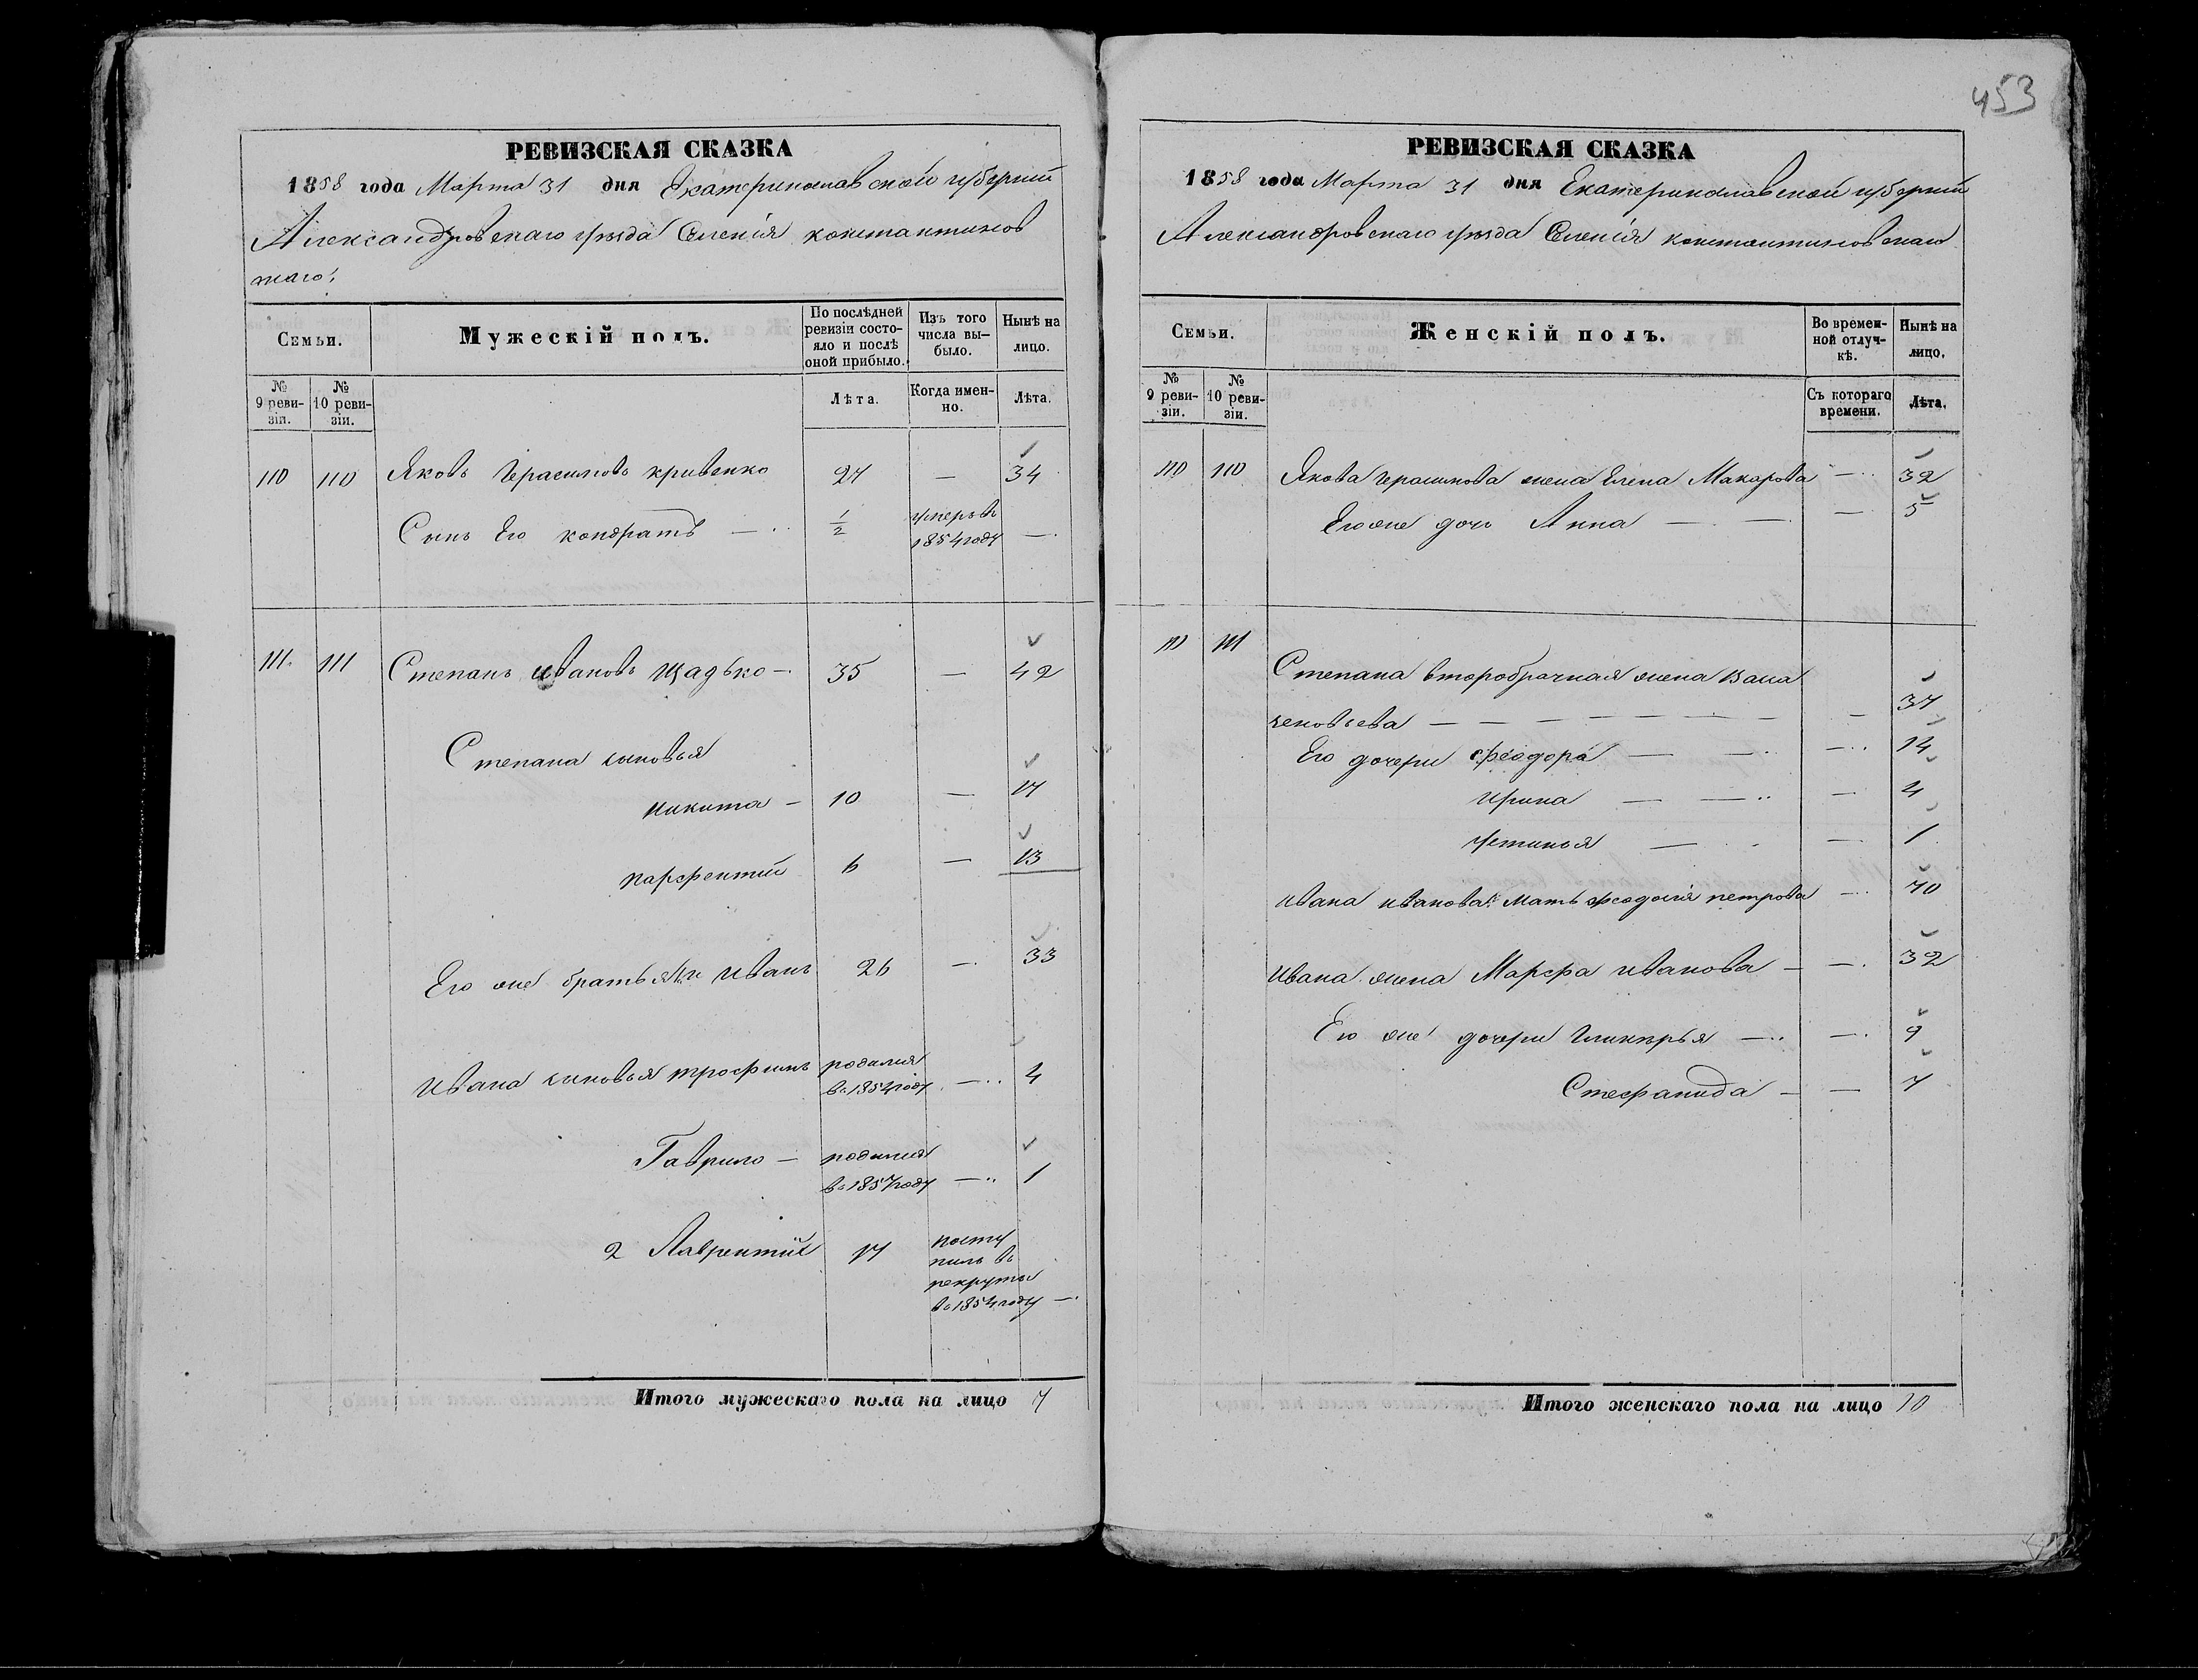 453
РЕВИЗСКАЯ СКАЗКА
1858 года Марта 31 дня Екатеринославской губернии
Александровскаго уезда Селенія константинов
скаго.
Семьи.
Мужескій полъ.
По послѣдней ревизіи состо-
яло и послѣ оной прибыло.
Изъ того числа вы-
было.
Нынѣ на лицо.
№ 9 реви-
зіи.
№ 10 реви-
зіи.
Лѣта.
Когда имен-
но.
Лѣта.
110 110 Яковъ Герасимовъ кривенко 27 — 34
Сынъ Его кондратъ — 1/2 умеръ в 1854 году —
111. 111 Степанъ ивановъ Щадько — 35 — 42
Степана сыновья
никита — 10 — 17
парфентий 6 — 13
Его же братья 1й иванъ 26 — 33
ивана сыновья трофимъ родился в 1854 году — 4
Гаврило — родился в 1857 году — 1
2 Лаврентій 17 посту
пилъ в
рекруты
в 1854 году —
Итого мужескаго пола на лицо 7
РЕВИЗСКАЯ СКАЗКА
1858 года Марта 31 дня Екатеринославской губернии
Александровскаго уезда Селенія константиновскаго
Семьи.
Женскій полъ.
Во времен-
ной отлуч-
кѣ.
Нынѣ на лицо.
№ 9 реви-
зіи.
№ 10 реви-
зіи.
Съ котораго времени.
Лѣта.
110 110 Якова Герасимова жена Елена Макарова — 32
Его же дочь Анна — — — 5
111 111
Степана второбрачная жена Васа
зеновьева — — — — — — — — 37
Его дочери феодора — — — 14
ирина — — — 4
устинья — — 1
ивана иванова мать феодосія петрова — 70
ивана жена Марфа иванова — — 32
Его же дочери Гликерья — — 9
Стефанида — — 7
Итого женскаго пола на лицо 10